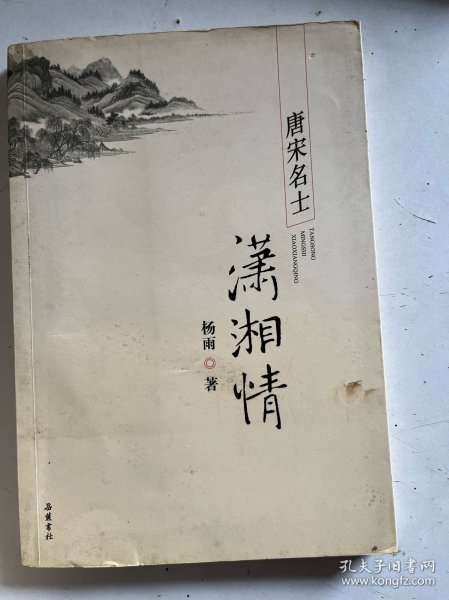 唐宋名士
TANGSONG
MINGSHI
XIAOXIANGQING
潇湘情
杨雨◎著
岳麓书社
孔夫子旧书网
www.kongfz.com